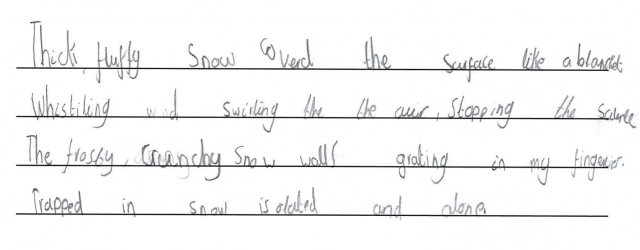 Thick, fluffy Snow Coverd the surface like a blanket
Whistiling wind swirling the the auir, Stopping the
The frosty, Crunchy Snow walls grating in my fingers.
Trapped in snow isolated and alone